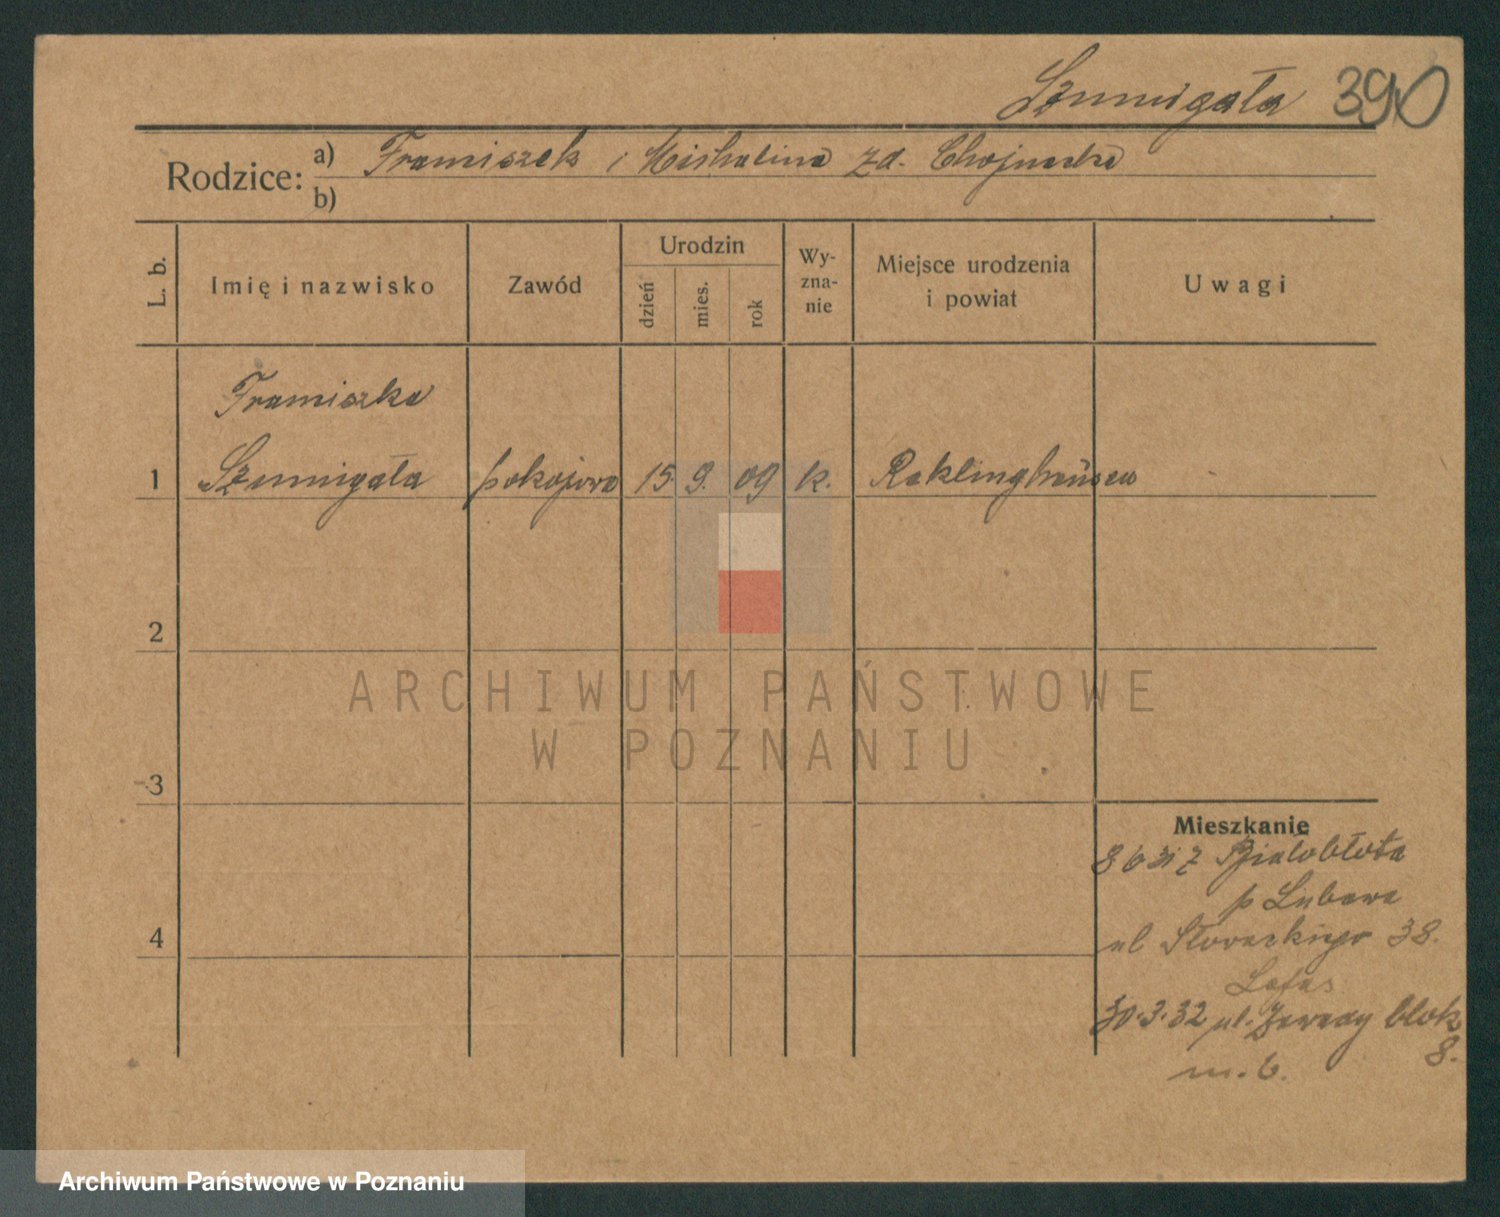 Szmigała 390
Rodzice: a) Franciszek i Michalina zd. Chojnacka
b)
L. b. Imię i nazwisko Zawód Urodzin dzień mies. rok Wy-zna-nie Miejsce urodzenia i powiat Uwagi
Franciszka
1 Szmigała pokojowa 15. 9. 09 k. Reklinghausen
2
ARCHIWUM PAŃSTWOWE
W POZNANIU
3
Mieszkanie
Białobłota
p Lubawa
4 ul Słowackiego 38.
30.3.32 ul. Zawady blok
8.
m. 6.
Archiwum Państwowe w Poznaniu